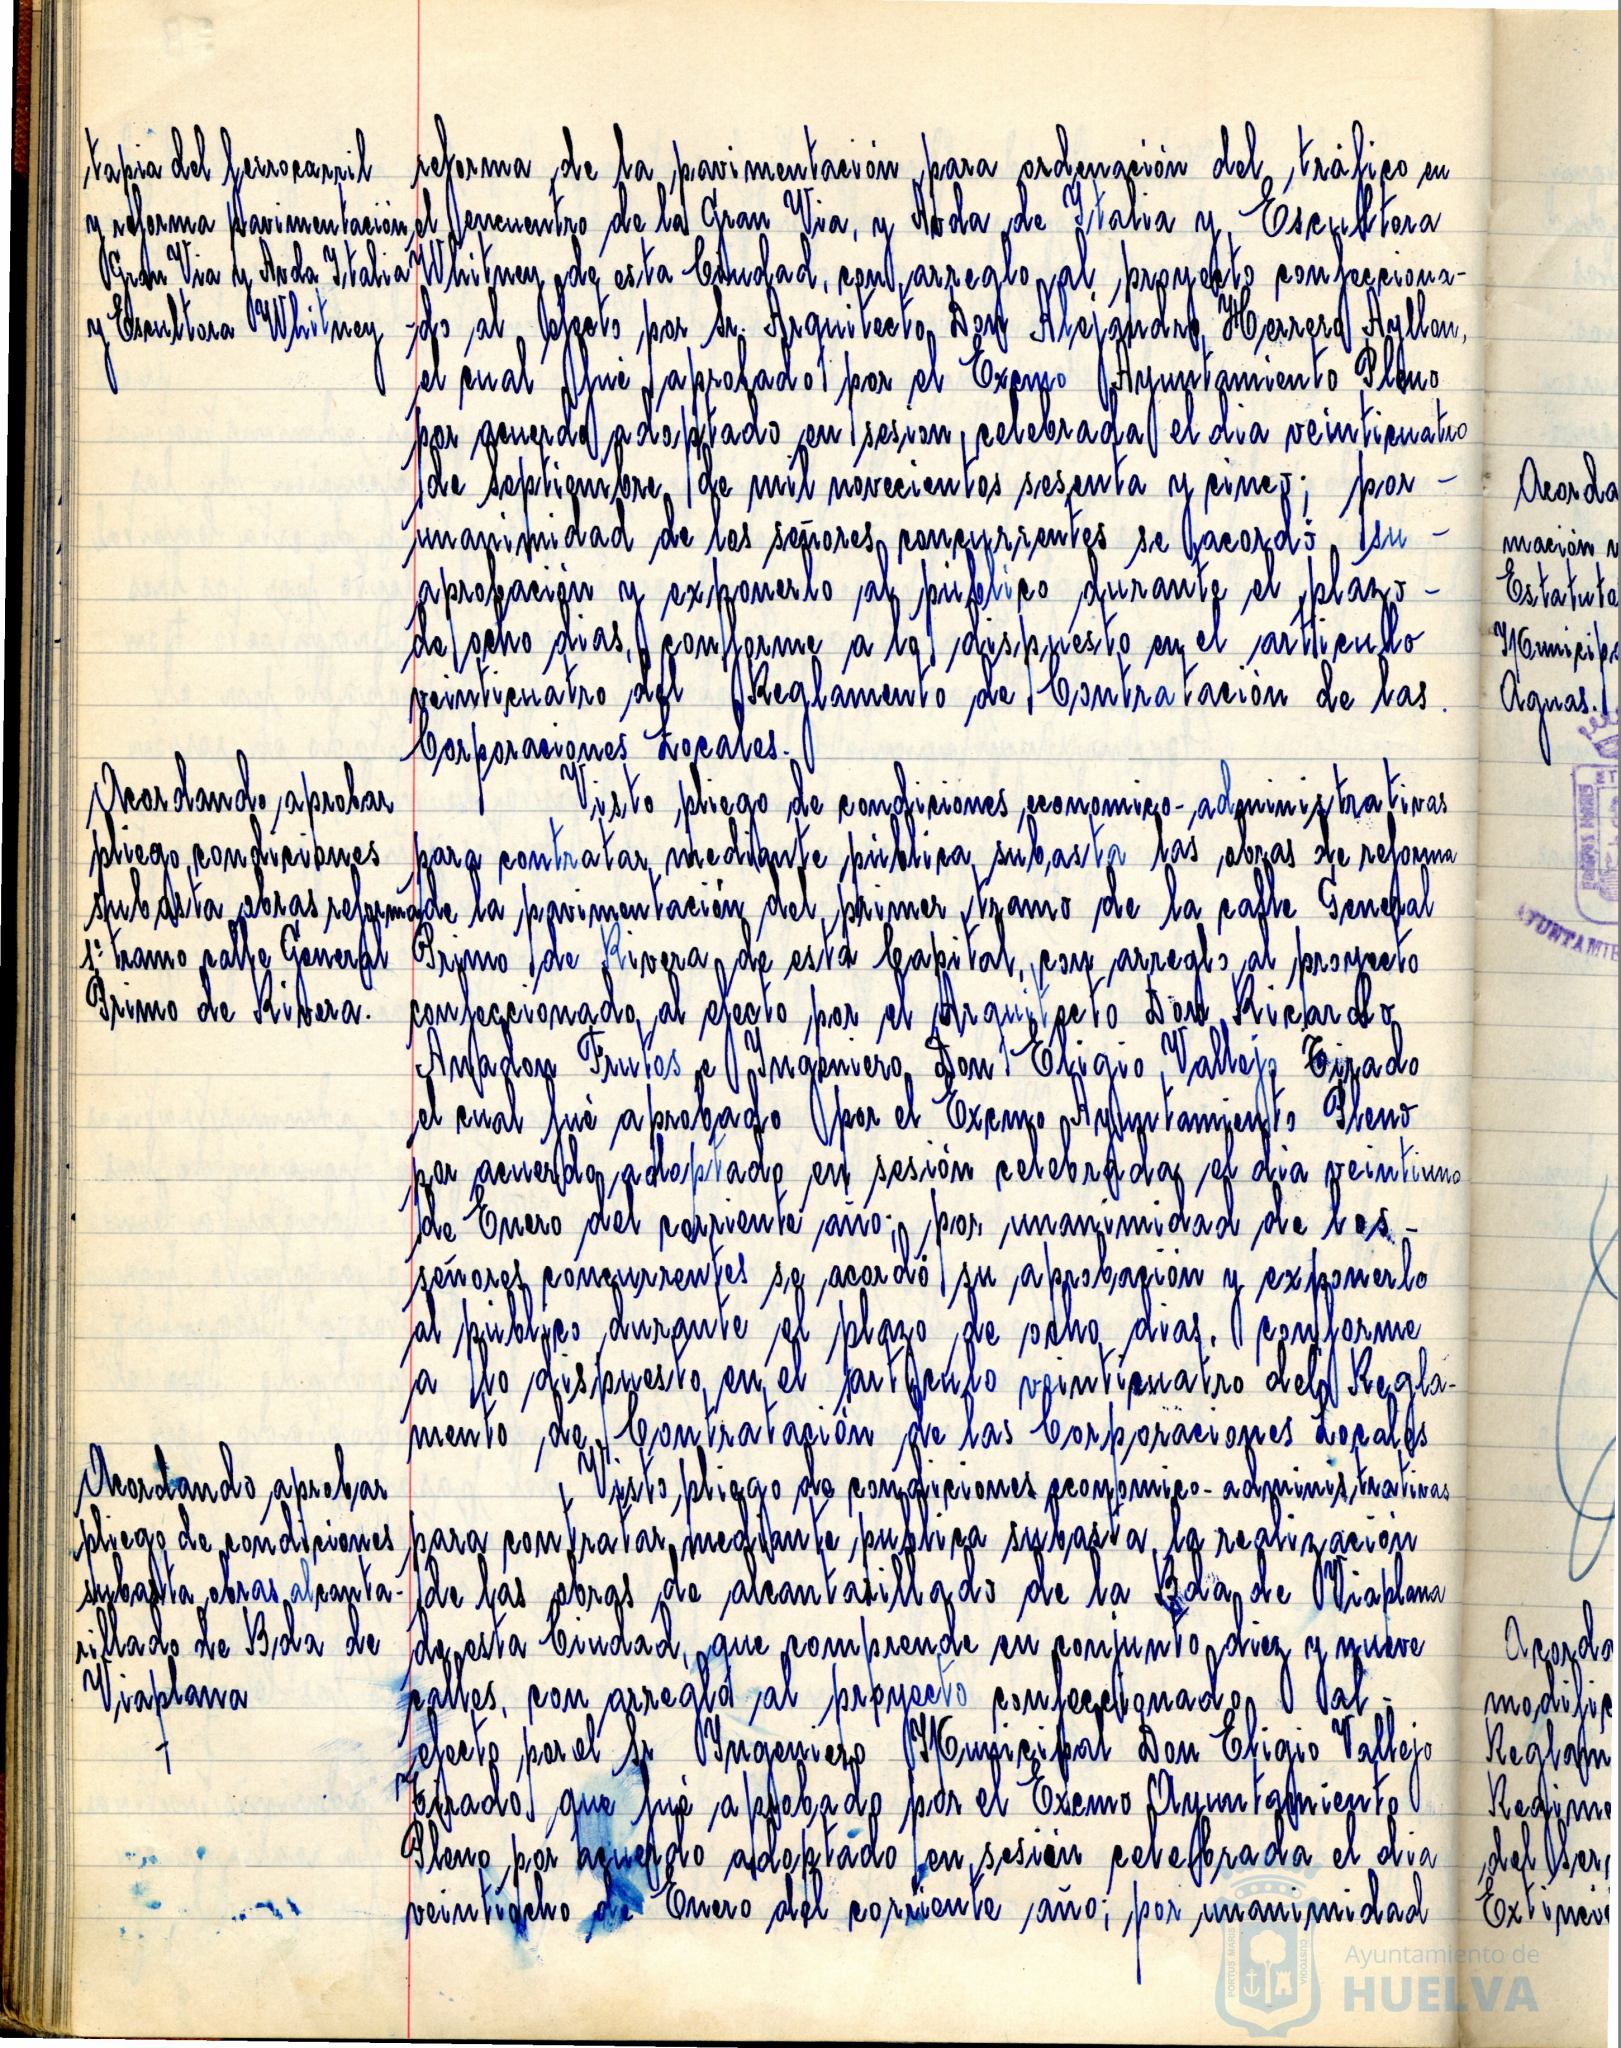 tapia del ferrocarril
y reforma pavimentación
Gran Via y Avda Italia
y Escultora Whitney
reforma de la pavimentación para ordenación del tráfico en
el encuentro de la Gran Via, y Avda de Italia y Escultora
Whitney de esta Ciudad, con arreglo al proyecto confecciona-
do al efecto por Sr. Arquitecto Don Alejandro Herrero Ayllon,
el cual fué aprobado por el Excmo Ayuntamiento Pleno
por acuerdo adoptado en sesion celebrada el dia veinticuatro
de septiembre de mil novecientos sesenta y cinco; por -
unanimidad de los señores concurrentes se acordó su -
aprobación y exponerlo al público durante el plazo -
de ocho dias, conforme a lo dispuesto en el articulo
veinticuatro del Reglamento de Contratación de las
Corporaciones Locales.
Acordando aprobar
pliego condiciones
subasta obras reforma
1º tramo calle General
Primo de Rivera.
Visto pliego de condiciones economico-administrativas
para contratar mediante pública subasta las obras de reforma
de la pavimentación del primer tramo de la calle General
Primo de Rivera de esta Capital, con arreglo al proyecto
confeccionado al efecto por el Arquitecto Don Ricardo
Anadon Frutos e Ingeniero Don Eligio Vallejo Tirado
el cual fué aprobado por el Excmo Ayuntamiento Pleno
por acuerdo adoptado en sesión celebrada el dia veintiuno
de Enero del corriente año; por unanimidad de los -
señores concurrentes se acordó su aprobación y exponerlo
al público durante el plazo de ocho dias, conforme
a lo dispuesto en el articulo veinticuatro del Regla-
mento de Contratación de las Corporaciones Locales
Acordando aprobar
pliego de condiciones
subasta obras alcanta-
rillado de Bda de
Viaplana
Visto pliego de condiciones economico-administrativas
para contratar mediante publica subasta la realización
de las obras de alcantarillado de la Bda de Viaplana
de esta Ciudad, que comprende en conjunto diez y nueve
calles, con arreglo al proyecto confeccionado al -
efecto por el Sr Ingeniero Municipal Don Eligio Vallejo
Tirado, que fué aprobado por el Excmo Ayuntamiento
Pleno por acuerdo adoptado en sesión celebrada el dia
veintiocho de Enero del corriente año; por unanimidad
Acorda
mación y
Estatuto
Municipa
Aguas.
AYUNTAMIE
Acorda
modific
Reglam
Regime
del Ser
Extinció
Ayuntamiento de
HUELVA